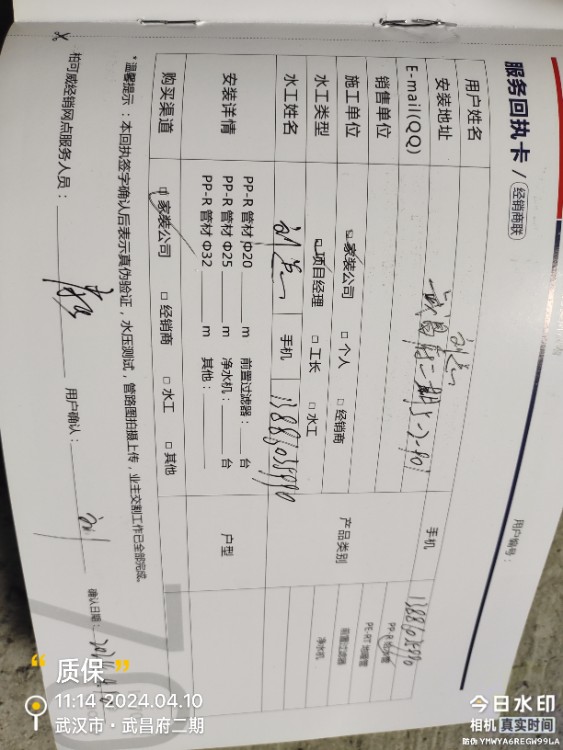 服务回执卡 / 经销商联
用户编号：
用户姓名
手机
安装地址
E-mail(QQ)
销售单位
产品类别
PP-R 给水管
PE-RT 地暖管
前置过滤器
净水机
施工单位 家装公司 □ 个人 □ 经销商
水工类型 项目经理 □ 工长 □ 水工
水工姓名 手机
安装详情
PP-R 管材 Φ20 m 前置过滤器： 台
PP-R 管材 Φ25 m 净水机： 台
PP-R 管材 Φ32 m 其他：
户型
购买渠道 家装公司 □ 经销商 □ 水工 □ 其他
*温馨提示：本回执签字确认后表示真伪验证，水压测试，管路图拍摄上传，业主交割工作已全部完成。
柏可威经销网点服务人员： 用户确认： 确认日期：
“质保”
11:14 2024.04.10
武汉市·武昌府二期
今日水印
相机 真实时间
防伪 YMWYA6REGW99LA